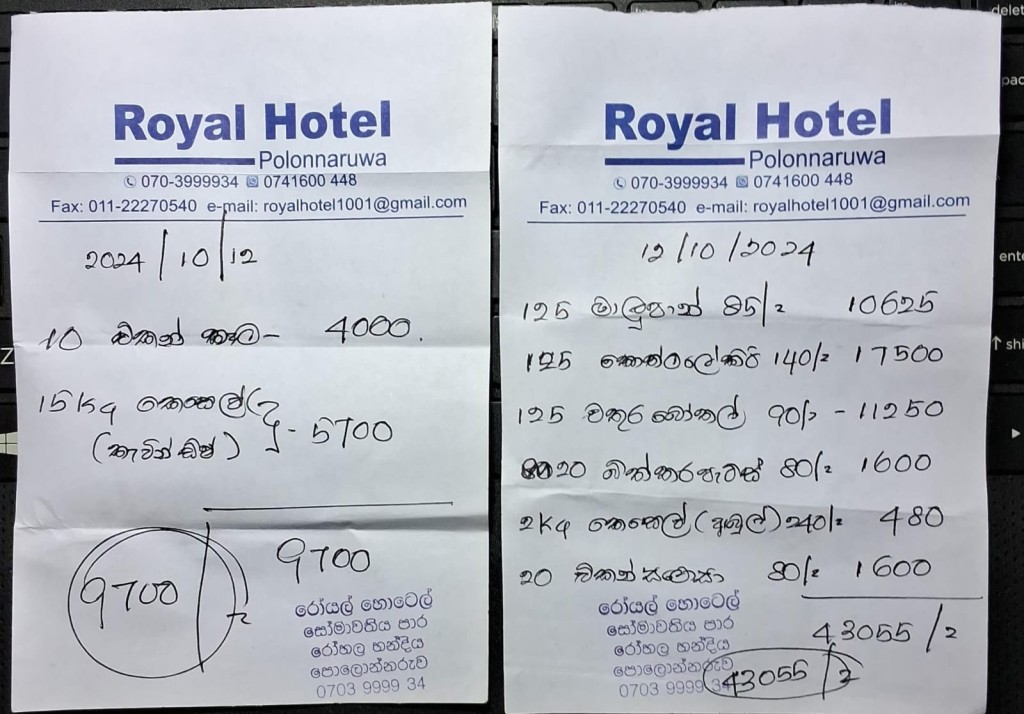 Royal Hotel
Polonnaruwa
070-3999934 0741600 448
Fax: 011-22270540 e-mail: royalhotel1001@gmail.com
2024/10/12
10 චිකන් කෑම - 4000.
15Kg කෙසෙල්
(කැවින්ඩිෂ්) - 5700
9700
9700
රෝයල් හොටෙල්
සෝමාවතිය පාර
රෝහල හන්දිය
පොලොන්නරුව
0703 9999 34
Royal Hotel
Polonnaruwa
070-3999934 0741600 448
Fax: 011-22270540 e-mail: royalhotel1001@gmail.com
12/10/2024
125 මාලුපාන් 85/= 10625
125 කොත්මලේ කිරි 140/= 17500
125 වතුර බෝතල් 90/= - 11250
20 බිත්තර පැටිස් 80/= 1600
2Kg කෙසෙල් (අඹුල්) 240/= 480
20 චිකන් සමෝසා 80/= 1600
43055/=
රෝයල් හොටෙල්
සෝමාවතිය පාර
රෝහල හන්දිය
පොලොන්නරුව
0703 9999 34
43055/=